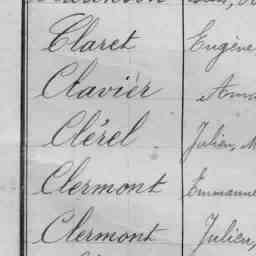 Claret Eugène
Clavier
Clérel Julien,
Clermont Emmanue
Clermont Julien,